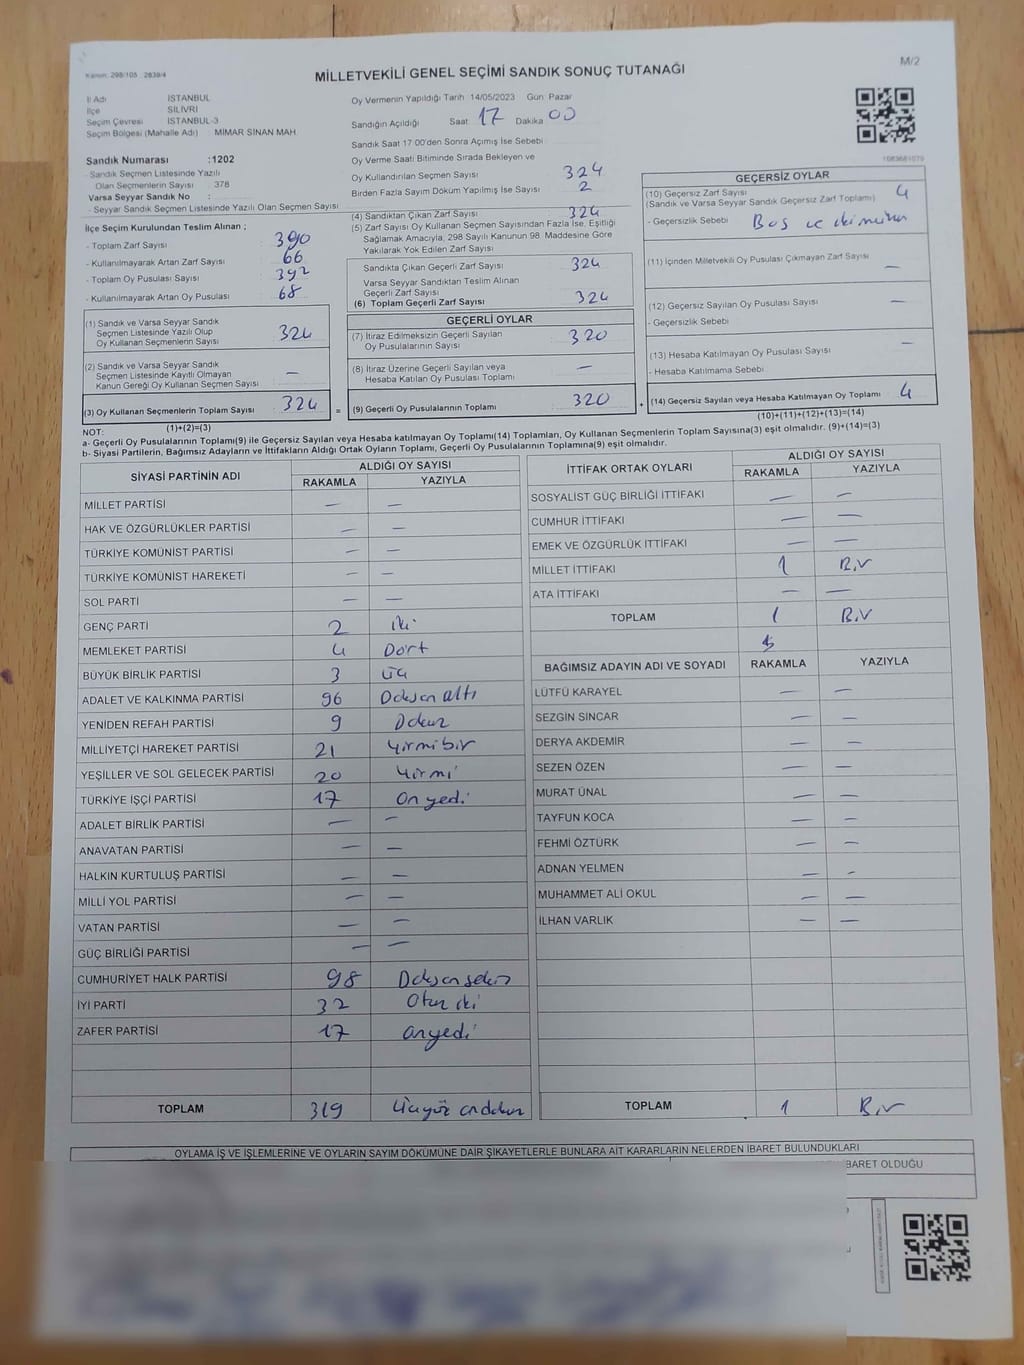 Kanun: 298/105 2839/4
M/2
MİLLETVEKİLİ GENEL SEÇİMİ SANDIK SONUÇ TUTANAĞI
İl Adı İSTANBUL
İlçe SİLİVRİ
Seçim Çevresi İSTANBUL-3
Seçim Bölgesi (Mahalle Adı) MİMAR SİNAN MAH.
Sandık Numarası :1202
- Sandık Seçmen Listesinde Yazılı
Olan Seçmenlerin Sayısı : 378
Varsa Seyyar Sandık No :
- Seyyar Sandık Seçmen Listesinde Yazılı Olan Seçmen Sayısı
İlçe Seçim Kurulundan Teslim Alınan ;
- Toplam Zarf Sayısı : 390
- Kullanılmayarak Artan Zarf Sayısı : 66
- Toplam Oy Pusulası Sayısı : 392
- Kullanılmayarak Artan Oy Pusulası : 68
(1) Sandık ve Varsa Seyyar Sandık
Seçmen Listesinde Yazılı Olup
Oy Kullanan Seçmenlerin Sayısı : 324
(2) Sandık ve Varsa Seyyar Sandık
Seçmen Listesinde Kayıtlı Olmayan
Kanun Gereği Oy Kullanan Seçmen Sayısı : —
(3) Oy Kullanan Seçmenlerin Toplam Sayısı : 324
(1)+(2)=(3)
Oy Vermenin Yapıldığı Tarih 14/05/2023 Gün Pazar
Sandığın Açıldığı Saat 17 Dakika 00
Sandık Saat 17.00'den Sonra Açımış İse Sebebi
Oy Verme Saati Bitiminde Sırada Bekleyen ve
Oy Kullandırılan Seçmen Sayısı 324
Birden Fazla Sayım Döküm Yapılmış İse Sayısı 2
(4) Sandıktan Çıkan Zarf Sayısı 324
(5) Zarf Sayısı Oy Kullanan Seçmen Sayısından Fazla İse, Eşitliği
Sağlamak Amacıyla, 298 Sayılı Kanunun 98. Maddesine Göre
Yakılarak Yok Edilen Zarf Sayısı
Sandıkta Çıkan Geçerli Zarf Sayısı 324
Varsa Seyyar Sandıktan Teslim Alınan
Geçerli Zarf Sayısı
(6) Toplam Geçerli Zarf Sayısı 324
GEÇERLİ OYLAR
(7) İtiraz Edilmeksizin Geçerli Sayılan
Oy Pusulalarının Sayısı : 320
(8) İtiraz Üzerine Geçerli Sayılan veya
Hesaba Katılan Oy Pusulası Toplamı : —
= (9) Geçerli Oy Pusulalarının Toplamı : 320
1083681070
GEÇERSİZ OYLAR
(10) Geçersiz Zarf Sayısı 4
(Sandık ve Varsa Seyyar Sandık Geçersiz Zarf Toplamı)
- Geçersizlik Sebebi Boş ve iki mühür
(11) İçinden Milletvekili Oy Pusulası Çıkmayan Zarf Sayısı —
(12) Geçersiz Sayılan Oy Pusulası Sayısı —
- Geçersizlik Sebebi
(13) Hesaba Katılmayan Oy Pusulası Sayısı —
- Hesaba Katılmama Sebebi
+ (14) Geçersiz Sayılan veya Hesaba Katılmayan Oy Toplamı 4
(10)+(11)+(12)+(13)=(14)
NOT:
a- Geçerli Oy Pusulalarının Toplamı(9) ile Geçersiz Sayılan veya Hesaba katılmayan Oy Toplamı(14) Toplamları, Oy Kullanan Seçmenlerin Toplam Sayısına(3) eşit olmalıdır. (9)+(14)=(3)
b- Siyasi Partilerin, Bağımsız Adayların ve İttifakların Aldığı Ortak Oyların Toplamı, Geçerli Oy Pusulalarının Toplamına(9) eşit olmalıdır.
SİYASİ PARTİNİN ADI ALDIĞI OY SAYISI
RAKAMLA YAZIYLA
MİLLET PARTİSİ — —
HAK VE ÖZGÜRLÜKLER PARTİSİ — —
TÜRKİYE KOMÜNİST PARTİSİ — —
TÜRKİYE KOMÜNİST HAREKETİ — —
SOL PARTİ — —
GENÇ PARTİ 2 iki
MEMLEKET PARTİSİ 4 Dört
BÜYÜK BİRLİK PARTİSİ 3 üç
ADALET VE KALKINMA PARTİSİ 96 Doksan altı
YENİDEN REFAH PARTİSİ 9 Dokuz
MİLLİYETÇİ HAREKET PARTİSİ 21 Yirmi bir
YEŞİLLER VE SOL GELECEK PARTİSİ 20 Yirmi
TÜRKİYE İŞÇİ PARTİSİ 17 On yedi
ADALET BİRLİK PARTİSİ — —
ANAVATAN PARTİSİ — —
HALKIN KURTULUŞ PARTİSİ — —
MİLLİ YOL PARTİSİ — —
VATAN PARTİSİ — —
GÜÇ BİRLİĞİ PARTİSİ — —
CUMHURİYET HALK PARTİSİ 98 Doksan sekiz
İYİ PARTİ 32 Otuz iki
ZAFER PARTİSİ 17 onyedi
TOPLAM 319 Üçyüz ondokuz
İTTİFAK ORTAK OYLARI ALDIĞI OY SAYISI
RAKAMLA YAZIYLA
SOSYALİST GÜÇ BİRLİĞİ İTTİFAKI — —
CUMHUR İTTİFAKI — —
EMEK VE ÖZGÜRLÜK İTTİFAKI — —
MİLLET İTTİFAKI 1 Bir
ATA İTTİFAKI — —
TOPLAM 1 Bir
BAĞIMSIZ ADAYIN ADI VE SOYADI RAKAMLA YAZIYLA
LÜTFÜ KARAYEL — —
SEZGİN SİNCAR — —
DERYA AKDEMİR — —
SEZEN ÖZEN — —
MURAT ÜNAL — —
TAYFUN KOCA — —
FEHMİ ÖZTÜRK — —
ADNAN YELMEN — -
MUHAMMET ALİ OKUL — —
İLHAN VARLIK — —
TOPLAM 1 Bir
OYLAMA İŞ VE İŞLEMLERİNE VE OYLARIN SAYIM DÖKÜMÜNE DAİR ŞİKAYETLERLE BUNLARA AİT KARARLARIN NELERDEN İBARET BULUNDUKLARI
İBARET OLDUĞU